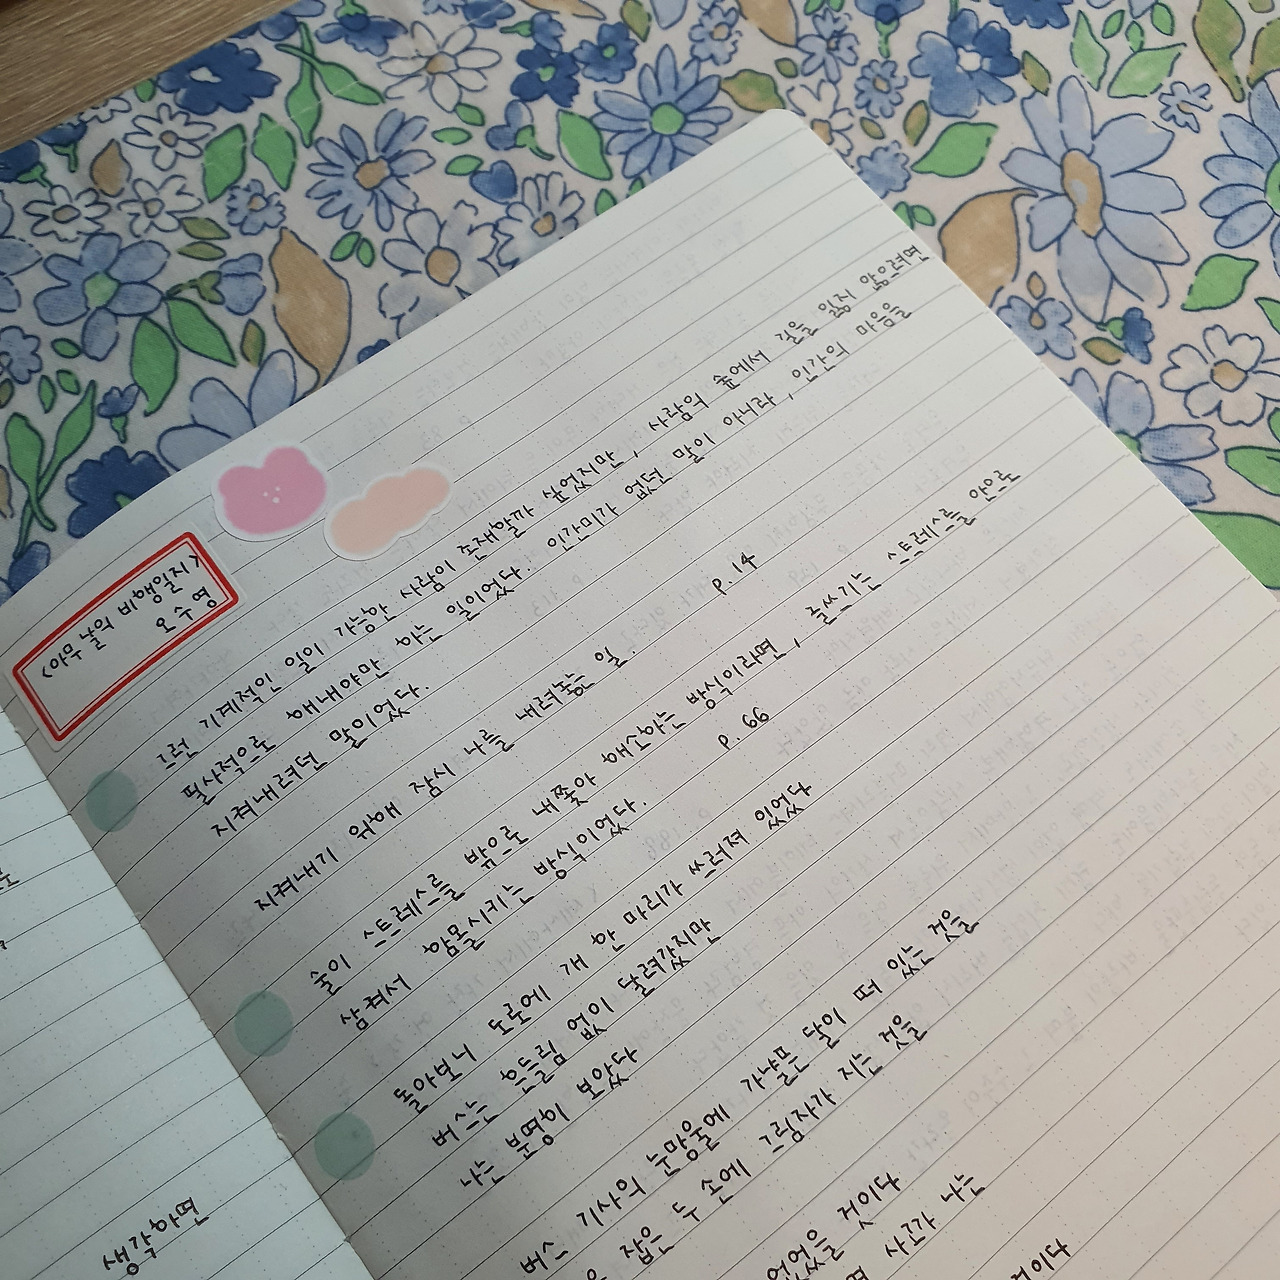 <아무 날의 비행일지>
오수영
그런 기계적인 일이 가능한 사람이 존재할까 싶었지만, 사람의 숲에서 길을 잃지 않으려면
필사적으로 해내야만 하는 일이었다. 인간미가 없던 말이 아니라, 인간의 마음을
지켜내려던 말이었다.
p.14
지켜내기 위해 잠시 나를 내려놓는 일.
술이 스트레스를 밖으로 내쫓아 해소하는 방식이라면, 글쓰기는 스트레스를 안으로
삼켜서 함몰시키는 방식이었다. p.66
돌아보니 도로에 개 한 마리가 쓰러져 있었다
버스는 흔들림 없이 달려갔지만
나는 분명히 보았다
버스 기사의 눈망울에 가냘픈 달이 떠 있는 것을
잡은 두 손에 그림자가 지는 것을
없었을 것이다
사고가 나는
것이다
생각하면